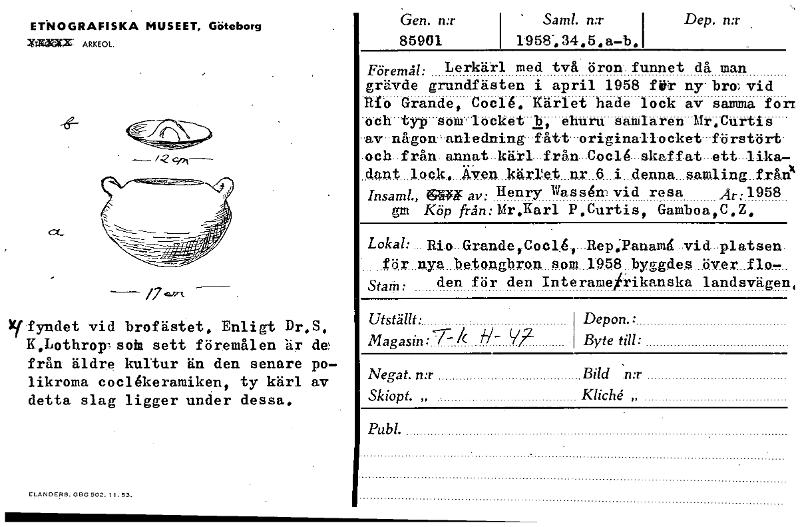 ETNOGRAFISKA MUSEET, Göteborg
ARKEOL.
b
12 cm
a
17 cm
x/ fyndet vid brofästet. Enligt Dr.S.
K.Lothrop som sett föremålen är de
från äldre kultur än den senare po-
likroma coclékeramiken, ty kärl av
detta slag ligger under dessa.
ELANDERS, GBG 502. 11. 53.
Gen. n:r Saml. n:r Dep. n:r
85901 1958.34.5.a-b.
Föremål: Lerkärl med två öron funnet då man
grävde grundfästen i april 1958 för ny bro vid
Río Grande, Coclé. Kärlet hade lock av samma form
och typ som locket b, ehuru samlaren Mr.Curtis
av någon anledning fått originallocket förstört
och från annat kärl från Coclé skaffat ett lika-
dant lock. Även kärlet nr 6 i denna samling från x
Insaml. av: Henry Wassén vid resa År: 1958
gm Köp från: Mr.Karl P.Curtis, Gamboa,C.Z.
Lokal: Rio Grande,Coclé, Rep.Panamá vid platsen
för nya betongbron som 1958 byggdes över flo-
Stam: den för den Interamerikanska landsvägen.
Utställt: Depon.:
Magasin: T-k H-47 Byte till:
Negat. n:r Bild n:r
Skiopt. „ Kliché „
Publ.